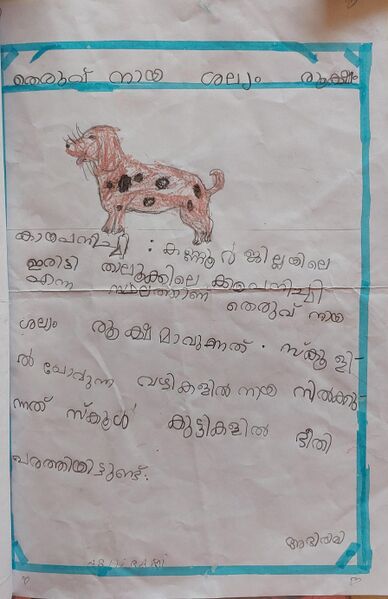 തെരുവ് നായ ശല്യം രൂക്ഷം
കായപനിച്ചി : കണ്ണൂർ ജില്ലയിലെ
ഇരിട്ടി താലൂക്കിലെ കായപനിച്ചി
എന്ന സ്ഥലത്താണ് തെരുവ് നായ
ശല്യം രൂക്ഷമാവുന്നത്. സ്കൂളി-
ൽ പോവുന്ന വഴികളിൽ നായ നിൽക്കു-
ന്നത് സ്കൂൾ കുട്ടികളിൽ ഭീതി
പരത്തിയിട്ടുണ്ട്.